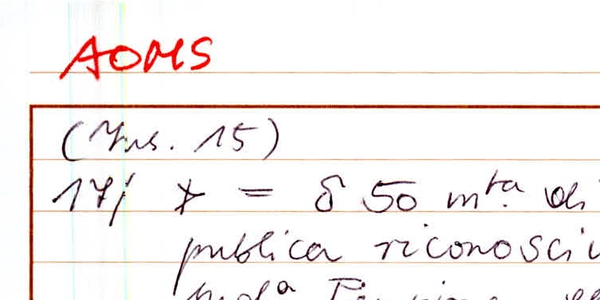 AOMS
(Ins. 15)
17/ * = δ 50 m.ta di
publica riconosci